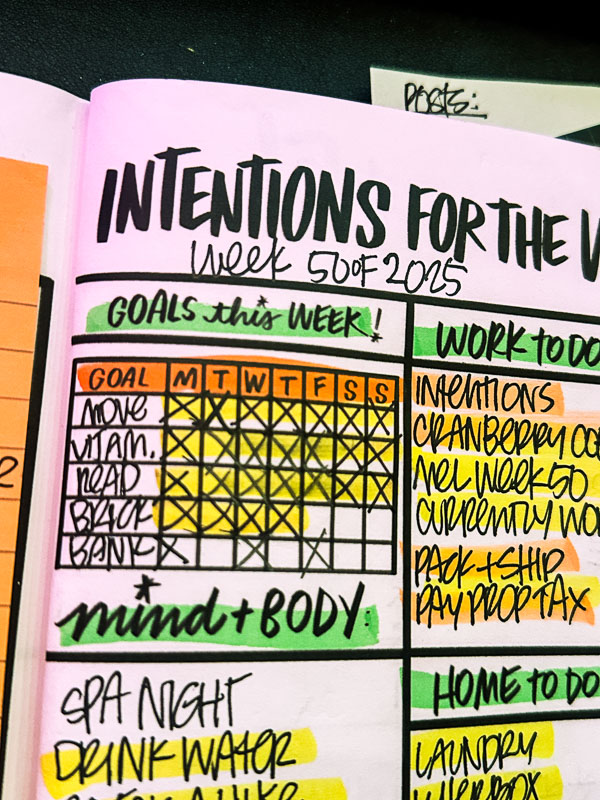 POSTS:
INTENTIONS FOR THE
Week 50 OF 2025
GOALS this WEEK!
GOAL M T W T F S S
MOVE X X X X X X X
VITAM. X X X X X X X
READ X X X X X X X
BRICK X X X X
BANK X X X
mind + BODY:
SPA NIGHT
DRINK WATER
WORK TO DO
INTENTIONS
CRANBERRY
NEL WEEK 50
CURRENTLY
PACK + SHIP
PAY PROP TAX
HOME TO DO
LAUNDRY